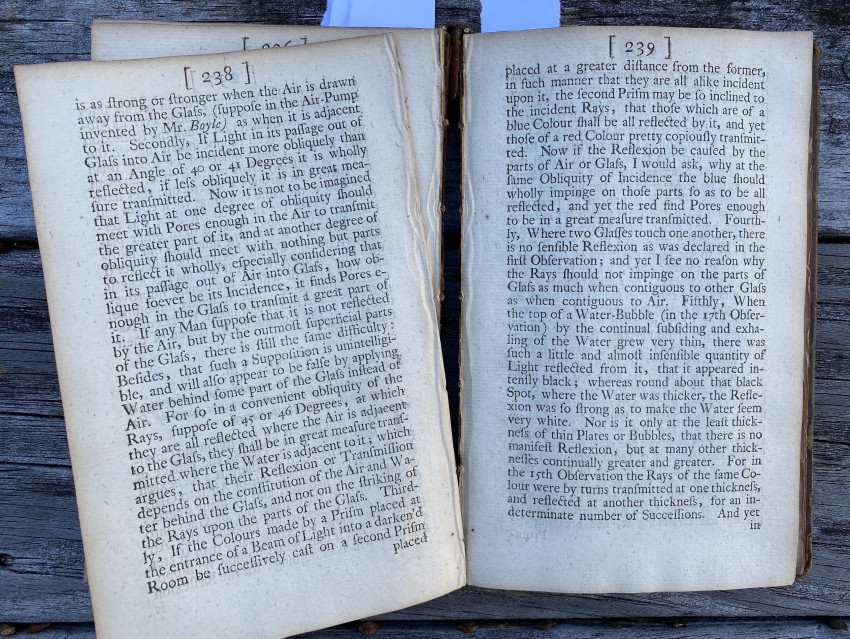 [ 238 ]
is as ſtrong or ſtronger when the Air is drawn
away from the Glaſs, (ſuppoſe in the Air-Pump
invented by Mr. Boyle) as when it is adjacent
to it. Secondly, If Light in its paſſage out of
Glaſs into Air be incident more obliquely than
at an Angle of 40 or 41 Degrees it is wholly
reflected, if leſs obliquely it is in great mea-
ſure tranſmitted. Now it is not to be imagined
that Light at one degree of obliquity ſhould
meet with Pores enough in the Air to tranſmit
the greater part of it, and at another degree of
obliquity ſhould meet with nothing but parts
to reflect it wholly, eſpecially conſidering that
in its paſſage out of Air into Glaſs, how ob-
lique ſoever be its Incidence, it finds Pores e-
nough in the Glaſs to tranſmit a great part of
it. If any Man ſuppoſe that it is not reflected
by the Air, but by the outmoſt ſuperficial parts
of the Glaſs, there is ſtill the ſame difficulty:
Beſides, that ſuch a Suppoſition is unintelligi-
ble, and will alſo appear to be falſe by applying
Water behind ſome part of the Glaſs inſtead of
Air. For ſo in a convenient obliquity of the
Rays, ſuppoſe of 45 or 46 Degrees, at which
they are all reflected where the Air is adjacent
to the Glaſs, they ſhall be in great meaſure tranſ-
mitted where the Water is adjacent to it; which
argues, that their Reflexion or Tranſmiſſion
depends on the conſtitution of the Air and Wa-
ter behind the Glaſs, and not on the ſtriking of
the Rays upon the parts of the Glaſs. Third-
ly, If the Colours made by a Priſm placed at
the entrance of a Beam of Light into a darken'd
Room be ſucceſſively caſt on a ſecond Priſm
placed
[ 239 ]
placed at a greater diſtance from the former,
in ſuch manner that they are all alike incident
upon it, the ſecond Priſm may be ſo inclined to
the incident Rays, that thoſe which are of a
blue Colour ſhall be all reflected by it, and yet
thoſe of a red Colour pretty copiouſly tranſmit-
ted. Now if the Reflexion be cauſed by the
parts of Air or Glaſs, I would ask, why at the
ſame Obliquity of Incidence the blue ſhould
wholly impinge on thoſe parts ſo as to be all
reflected, and yet the red find Pores enough
to be in a great meaſure tranſmitted. Fourth-
ly, Where two Glaſſes touch one another, there
is no ſenſible Reflexion as was declared in the
firſt Obſervation; and yet I ſee no reaſon why
the Rays ſhould not impinge on the parts of
Glaſs as much when contiguous to other Glaſs
as when contiguous to Air. Fifthly, When
the top of a Water-Bubble (in the 17th Obſer-
vation) by the continual ſubſiding and exha-
ling of the Water grew very thin, there was
ſuch a little and almoſt inſenſible quantity of
Light reflected from it, that it appeared in-
tenſly black; whereas round about that black
Spot, where the Water was thicker, the Refle-
xion was ſo ſtrong as to make the Water ſeem
very white. Nor is it only at the leaſt thick-
neſs of thin Plates or Bubbles, that there is no
manifeſt Reflexion, but at many other thick-
neſſes continually greater and greater. For in
the 15th Obſervation the Rays of the ſame Co-
lour were by turns tranſmitted at one thickneſs,
and reflected at another thickneſs, for an in-
determinate number of Succeſſions. And yet
in